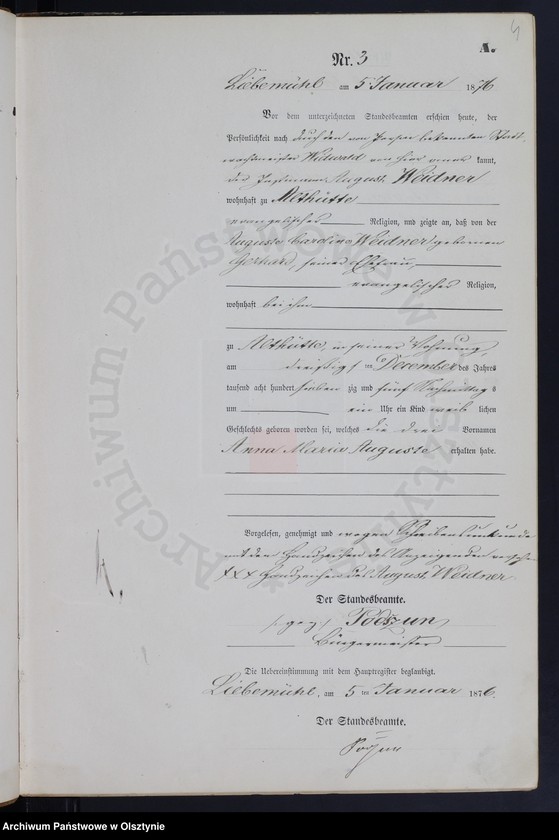 4
A.
Nr. 3
Liebemühl am 5 Januar 1876
Vor dem unterzeichneten Standesbeamten erschien heute, der
Persönlichkeit nach durch den von Person bekannten Stadt
wachtmeister von hier aner kannt,
der Instmann August Weidner
wohnhaft zu Althütte
evangelischer Religion, und zeigte an, daß von der
Auguste Weidner gebornen
seiner Ehefrau,
evangelischer Religion,
wohnhaft bei ihm
zu Althütte, in seiner Wohnung,
am dreißigsten December des Jahres
tausend acht hundert sieben zig und fünf Nachmittags
um ein Uhr ein Kind weib lichen
Geschlechts geboren worden sei, welches die drei Vornamen
Anna Maria Auguste erhalten habe.
Vorgelesen, genehmigt und wegen Schreibensunkunde
mit dem Handzeichen des Anzeigenden versehen
+++ Handzeichen des August Weidner
Der Standesbeamte.
(gez) Podszun
Bürgermeister
Die Uebereinstimmung mit dem Hauptregister beglaubigt.
Liebemühl, am 5 ten Januar 1876.
Der Standesbeamte.
Archiwum Państwowe w Olsztynie
Archiwum Państwowe w Olsztynie